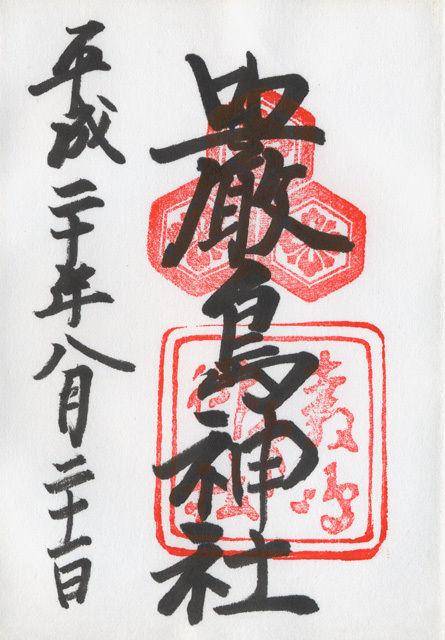 嚴島神社
平成二十年八月二十一日